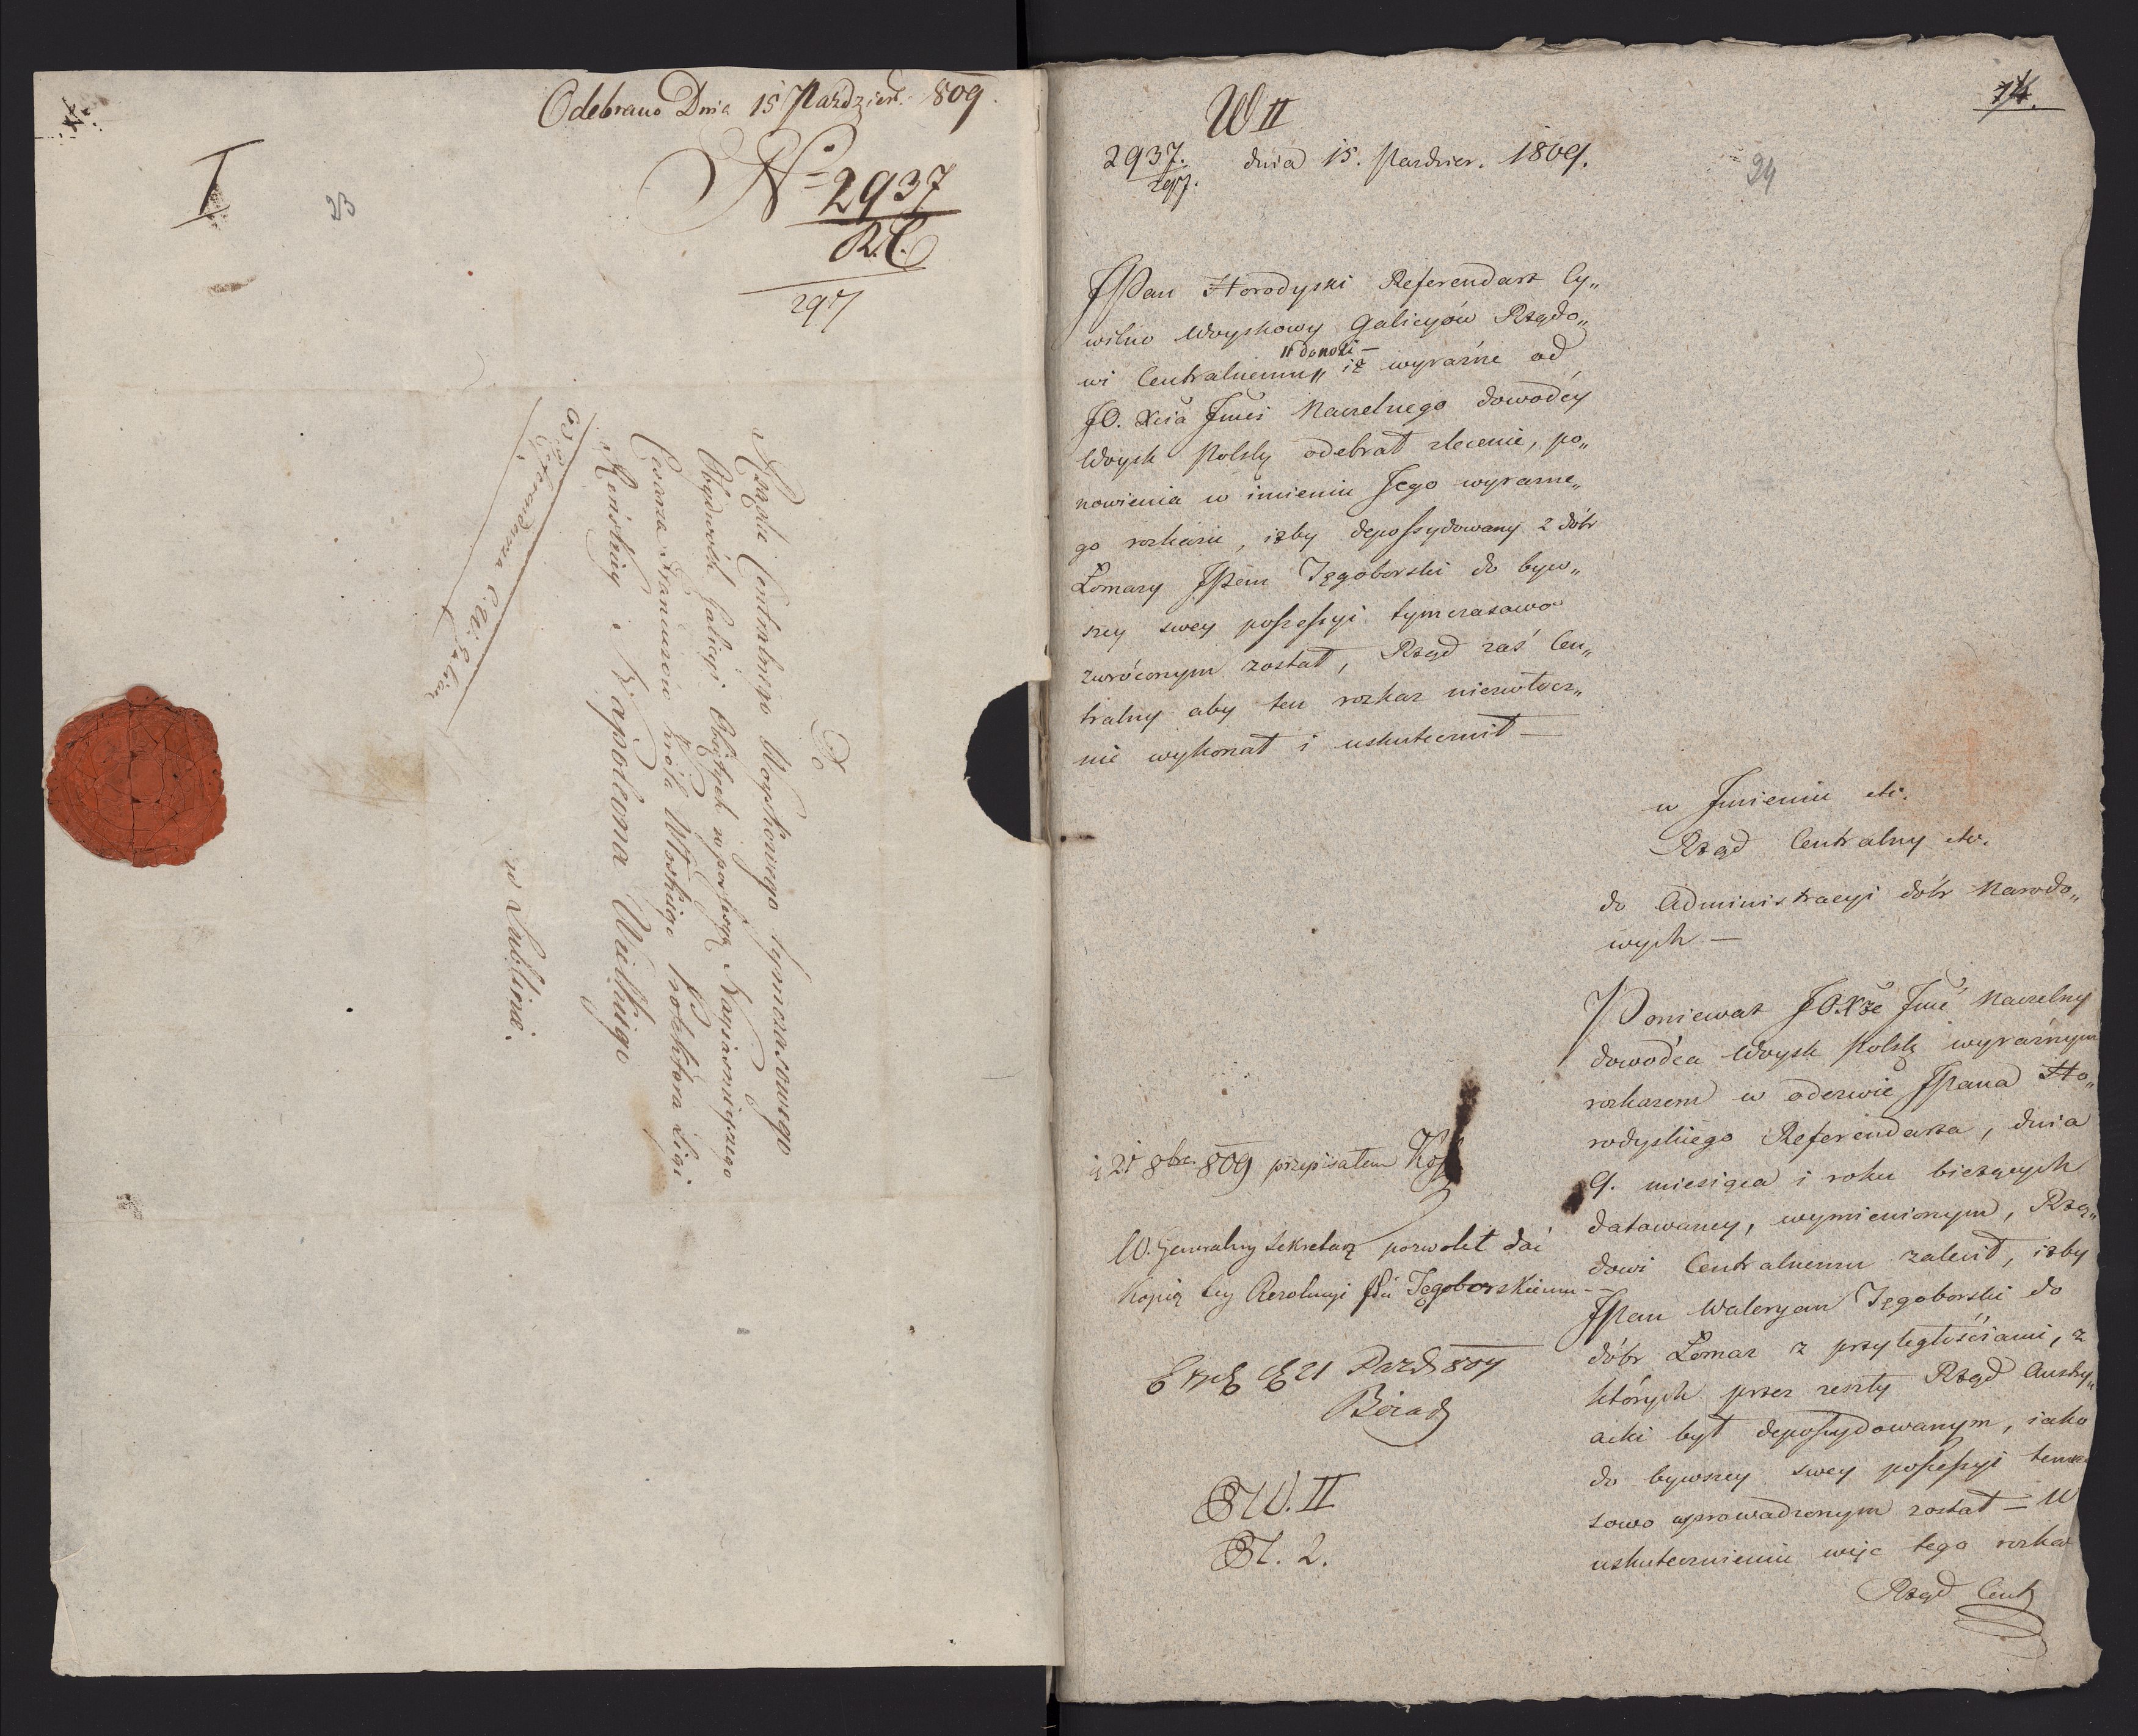 Odebrano Dnia 15 Paździer. 809.
I
23
No 2937
R.C.
297
Do
Rządu Centralnego Woyskowego tymczasowego
Obydwóch Galicyi Objętych w possessyą Nayjaśnieyszego
Cesarza Francuzów Króla Włoskiego Protektora Ligi
Reńskiey Napoleona Wielkiego
w Lublinie.
W II
2937.
297.
dnia 15. Pazdzier. 1809.
14.
24
JPan Horodyski Referendarz Cy„
wilno Woyskowy Galicyów Rządo„
wi Centralnemu„ iż wyraźne od
„donosi —
JO. Xcia Jmci Naczelnego dowódcy
Woysk Polskɀ odebrał zlecenie, po„
nowienia w imieniu Jego wyraźne„
go rozkazu, iżby depossydowany z dóbr
Łomazy JPan Tęgoborski do byw„
szey swey possessyi tymczasowo
zwróconym został, Rząd zaś Cen„
tralny aby ten rozkaz niezwłocz„
nie wykonał i uskutecznił —
w Jmieniu etc.
Rząd Centralny etc.
do Administracyi dóbr Narodo„
wych —
Ponieważ JOXże Jmć Naczelny
dowódca Woysk Polskɀ wyraźnym
rozkazem w odezwie JPana Ho„
rodyskiego Referendarza, dnia
9. miesiąca i roku bieżących
datowaney, wymienionym, Rzą„
dowi Centralnemu zalecił, iżby
JPan Waleryan Tęgoborski do
dóbr Łomaz z przyległościami, z
których przez zeszły Rząd Austry„
acki był depossydowanym, iako
do bywszey swey possessyi
sowo wprowadzonym został — W
uskutecznieniu więc tego rozkaz
Rząd Centr
21 8bre. 809 przepisałem
W. Generalny Sekretarz pozwolił dać
kopią tey Rezolucyi JPu Tęgoborskiemu —
21 Pazd 809
W. II
2.